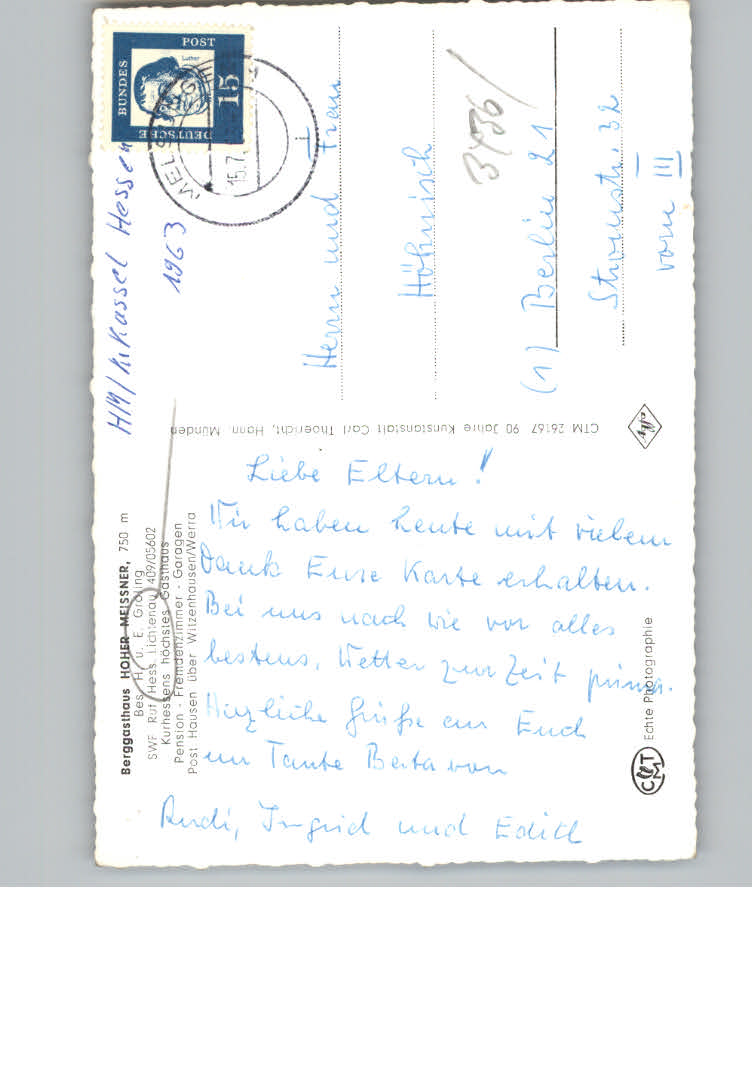 DEUTSCHE
BUNDES
POST
Luther
15
15.7.
HM/ Kassel Hessen
1963
Herrn und Frau
Höhnisch
(1) Berlin 21
Stromstr. 32
vorn III
3436/
CTM 26167 90 Jahre Kunstanstalt Carl Thoericht, Hann. Münden
Berggasthaus HOHER MEISSNER, 750 m
Bes. H. u. E. Gröling
SWF Ruf Hess. Lichtenau 409/05602
Kurhessens höchstes Gasthaus
Pension - Fremdenzimmer - Garagen
Post Hausen über Witzenhausen/Werra
Liebe Eltern!
Wir haben heute mit vielem
Dank Eure Karte erhalten.
Bei uns nach wie vor alles
bestens, Wetter zur Zeit prima.
Herzliche Grüße an Euch
un Tante Berta von
Rudi, Ingrid und Edith
Echte Photographie
CTM